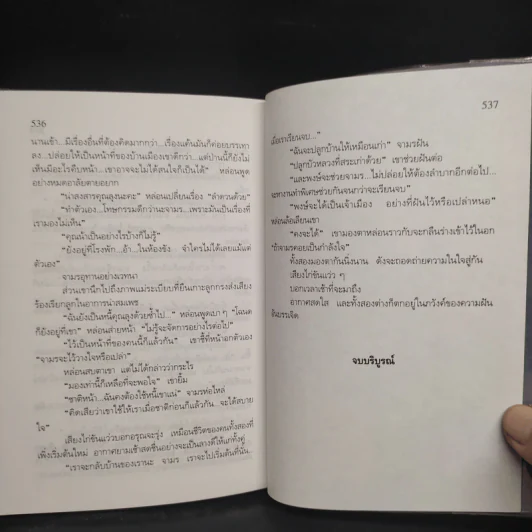 536
นานเข้า...มีเรื่องอื่นที่ต้องคิดมากกว่า...เรื่องแค้นมันก็ค่อยบรรเทา
ลง...ปล่อยให้เป็นหน้าที่ของบ้านเมืองเขาดีกว่า...แต่ป่านนี้ก็ยังไม่
เห็นมีอะไรคืบหน้า...เขาอาจจะไม่ได้สนใจก็เป็นได้" หล่อนพูด
อย่างหมดอาลัยตายอยาก
"น่าสงสารคุณลุงนะคะ" หล่อนเปลี่ยนเรื่อง "ลำดวนด้วย"
"ทำตัวเอง...โทษกรรมดีกว่านะจามร...เพราะมันเป็นเรื่องที่
เรามองไม่เห็น"
"คุณน้าเป็นอย่างไรบ้างก็ไม่รู้"
"ยังอยู่ที่โรงพัก...อ้า...ในห้องขัง... จำใครไม่ได้เลยแม้แต่
ตัวเอง"
จามรอุทานอย่างเวทนา
ส่วนเขานึกไปถึงภาพแม่ระเบียบที่ยืนเกาะลูกกรงส่งเสียง
ร้องเรียกลูกในอาการน่าสมเพช
"ฉันยังเป็นหนี้คุณลุงด้วยซ้ำไป..." หล่อนพูดเบา ๆ "โฉนด
ก็ยังอยู่ที่เขา" หล่อนส่ายหน้า "ไม่รู้จะจัดการอย่างไรต่อไป"
"ไว้เป็นหน้าที่ของคนนี้ก็แล้วกัน" เขาชี้ที่หน้าอกตัวเอง
"จามรจะไว้วางใจหรือเปล่า"
หล่อนสบตาเขา แต่ไม่ได้กล่าวว่ากระไร
"มองเท่านี้ก็เหลือที่จะพอใจ" เขายิ้ม
"ชาติหน้า...ฉันคงต้องใช้หนี้เขาแน่" จามรห่อไหล่
"คิดเสียว่าเขาใช้ให้เราเมื่อชาติก่อนก็แล้วกัน จะได้สบาย
ใจ"
เสียงไก่ขันแว่วบอกอรุณจะรุ่ง เหมือนชีวิตของคนทั้งสองที่
เพิ่งเริ่มต้นใหม่ อากาศยามเช้าสดชื่นอย่างจะเป็นลางดีให้แก่ทั้งคู่
"เราจะกลับบ้านของเรานะ จามร เราจะไปเริ่มต้นที่นั่น...
537
เมื่อเราเรียนจบ..."
"ฉันจะปลูกบ้านให้เหมือนเก่า" จามรฝัน
"ปลูกบัวหลวงที่สระเก่าด้วย" เขาช่วยฝันต่อ
"และพงษ์จะช่วยจามร...ไม่ปล่อยให้ต้องลำบากอีกต่อไป...
จะหางานทำพิเศษช่วยกันจนกว่าจะเรียนจบ"
"พงษ์จะได้เป็นเจ้าเมือง อย่างที่ฝันไว้หรือเปล่าหนอ"
หล่อนล้อเลียนเขา
"คงจะได้" เขามองตาหล่อนราวกับจะกลืนร่างเข้าไว้ในอก
"ถ้าจามรคอยเป็นกำลังใจ"
ทั้งสองมองตากันนิ่งนาน ดังจะถอดถ่ายความในใจสู่กัน
เสียงไก่ขันแว่ว ๆ
บอกเวลาเช้าที่จะมาถึง
อากาศสดใส และทั้งสองต่างก็ตกอยู่ในภวังค์ของความฝัน
อันบรรเจิด
จบบริบูรณ์